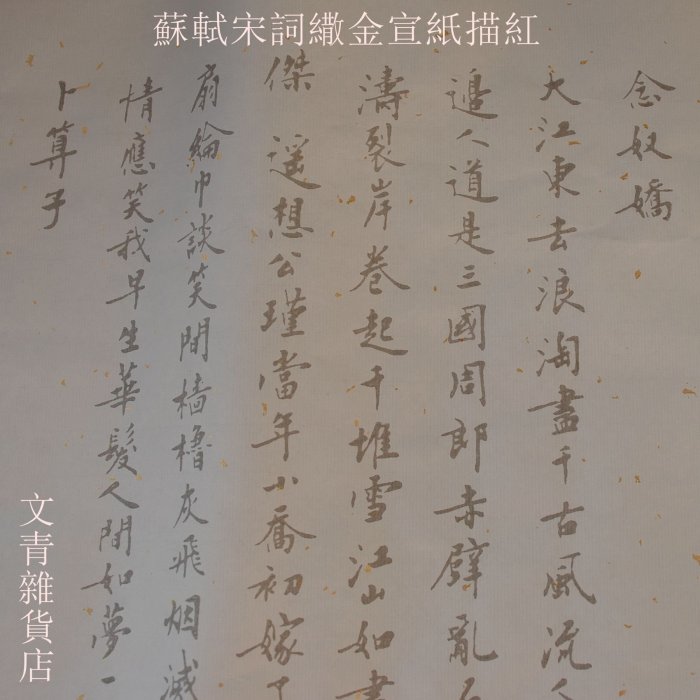 蘇軾宋詞繖金宣紙描紅
念奴嬌
大江東去浪淘盡千古風流
邉人道是三國周郎赤壁亂
濤裂岸卷起千堆雪江山如畫
傑 遥想公瑾當年小喬初嫁了
扇綸巾談笑間檣櫓灰飛烟滅
情應笑我早生華髮人間如夢一
卜算子
文青雜貨店